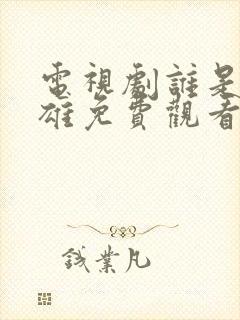 電視劇誰是
雄免費觀看
錢業凡